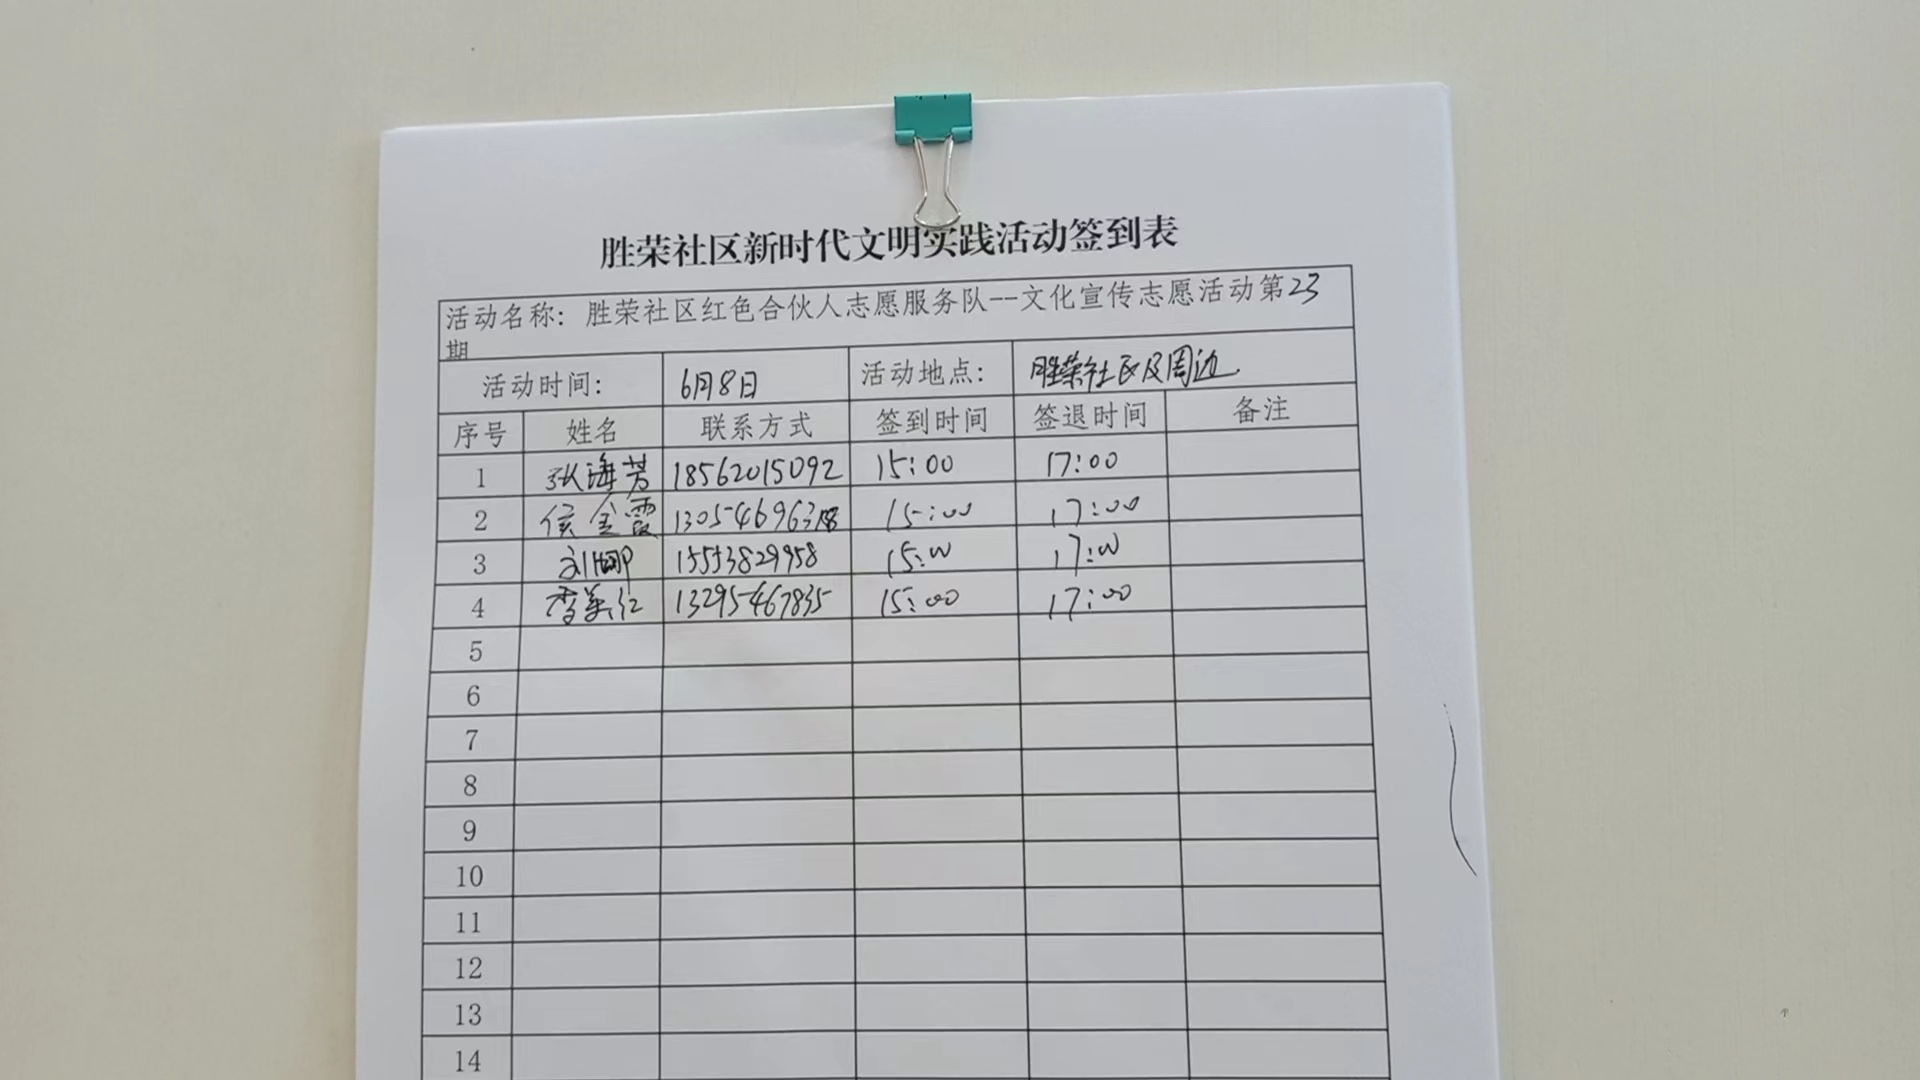 胜荣社区新时代文明实践活动签到表
活动名称: 胜荣社区红色合伙人志愿服务队--文化宣传志愿活动第23
期
活动时间: 6月8日 活动地点: 胜荣社区及周边
序号 姓名 联系方式 签到时间 签退时间 备注
1 张海芳 18562015092 15:00 17:00
2 侯金霞 15:00 17:00
3 刘娜 15553829958 15:00 17:00
4 13295467835 15:00 17:00
5
6
7
8
9
10
11
12
13
14